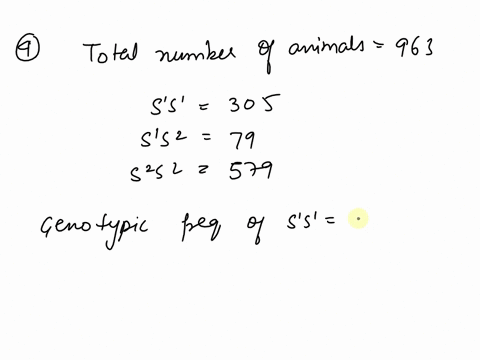 9 Total number of animals = 963
S'S' = 305
S'S2 = 79
S2S2 = 579
Genotypic freq of S'S' =